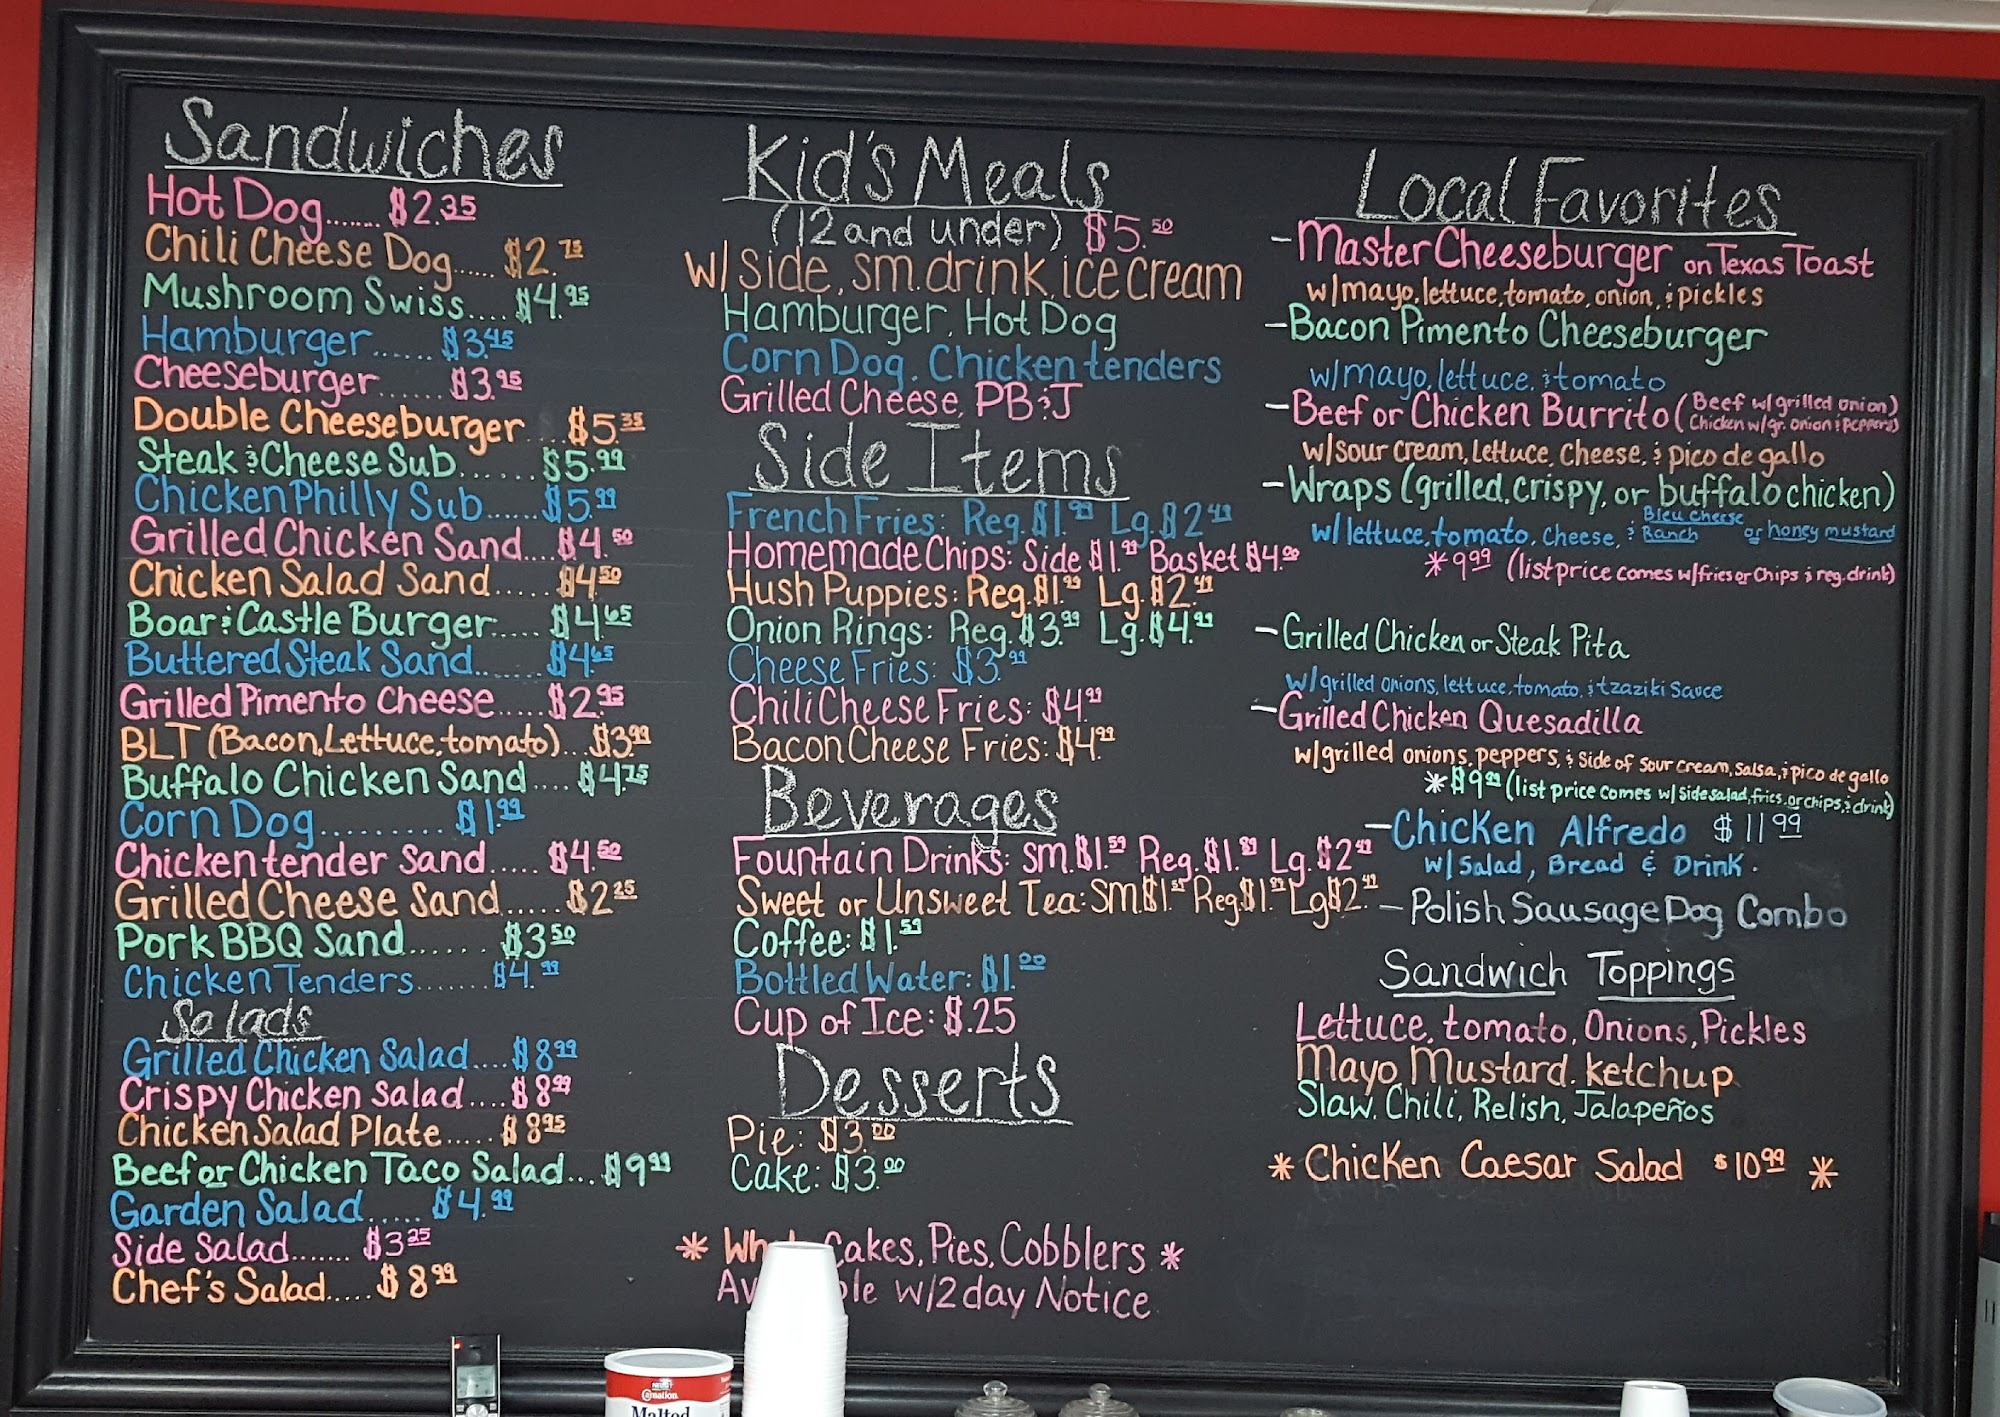 Sandwiches
Hot Dog....... $2.35
Chili Cheese Dog...... $2.75
Mushroom Swiss..... $4.95
Hamburger...... $3.45
Cheeseburger....... $3.95
Double Cheeseburger...$5.35
Steak & Cheese Sub....... $5.99
Chicken Philly Sub......$5.99
Grilled Chicken Sand....$4.50
Chicken Salad Sand..... $4.50
Boar & Castle Burger..... $4.65
Buttered Steak Sand....... $4.65
Grilled Pimento Cheese.....$2.95
BLT (Bacon, Lettuce, tomato)...$3.99
Buffalo Chicken Sand.... $4.75
Corn Dog.......... $1.99
Chicken tender Sand..... $4.50
Grilled Cheese Sand..... $2.25
Pork BBQ Sand...... $3.50
Chicken Tenders....... $4.99
Salads
Grilled Chicken Salad....$8.99
Crispy Chicken Salad....$8.99
Chicken Salad Plate..... $8.95
Beef or Chicken Taco Salad...$9.99
Garden Salad..... $4.99
Side Salad....... $3.25
Chef's Salad.....$8.99
Kid's Meals
(12 and under) $5.50
w/side, sm. drink, ice cream
Hamburger, Hot Dog
Corn Dog, Chicken tenders
Grilled Cheese, PB&J
Side Items
French Fries: Reg. $1.99 Lg. $2.49
Homemade Chips: Side $1.99 Basket $4.00
Hush Puppies: Reg. $1.99 Lg. $2.49
Onion Rings: Reg. $3.99 Lg. $4.99
Cheese Fries: $3.99
Chili Cheese Fries: $4.99
Bacon Cheese Fries: $4.99
Beverages
Fountain Drinks: sm. $1.59 Reg. $1.89 Lg. $2.49
Sweet or Unsweet Tea: Sm. $1. Reg. $1. Lg $2.
Coffee: $1.59
Bottled Water: $1.00
Cup of Ice: $.25
Desserts
Pie: $3.00
Cake: $3.00
* Wh Cakes, Pies, Cobblers *
Av ble w/2 day Notice
Local Favorites
- Master Cheeseburger on Texas Toast
w/mayo, lettuce, tomato, onion, & pickles
- Bacon Pimento Cheeseburger
w/mayo, lettuce, & tomato
- Beef or Chicken Burrito (Beef w/grilled onion)
(Chicken w/gr. onion & peppers)
w/sour cream, lettuce, cheese, & pico de gallo
- Wraps (grilled, crispy, or buffalo chicken)
w/lettuce, tomato, cheese, & Bleu Cheese Ranch or honey mustard
*9.99 (list price comes w/fries or chips & reg. drink)
- Grilled Chicken or Steak Pita
w/grilled onions, lettuce, tomato, & tzaziki sauce
- Grilled Chicken Quesadilla
w/grilled onions, peppers, & side of sour cream, salsa, & pico de gallo
*$9.99 (list price comes w/side salad, fries or chips, & drink)
- Chicken Alfredo $11.99
w/salad, Bread & Drink.
- Polish Sausage Dog Combo
Sandwich Toppings
Lettuce, tomato, Onions, Pickles
Mayo Mustard, ketchup
Slaw, Chili, Relish, Jalapeños
* Chicken Caesar Salad $10.99 *
Nestlé
Carnation
Malted